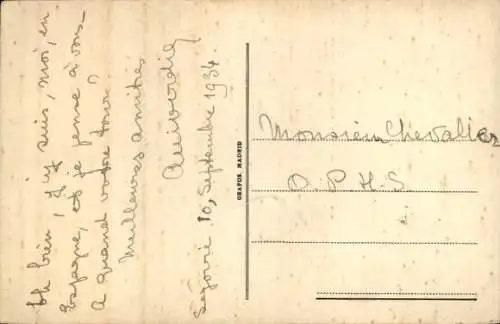 Eh bien, j'y suis, moi, en
Espagne, et je pense à vous
A quand votre tour?
Meilleures amitiés
Ségovie 10, Septembre 1934.
GRAFOS. MADRID
Monsieur Chevallier
O. P. H. S.